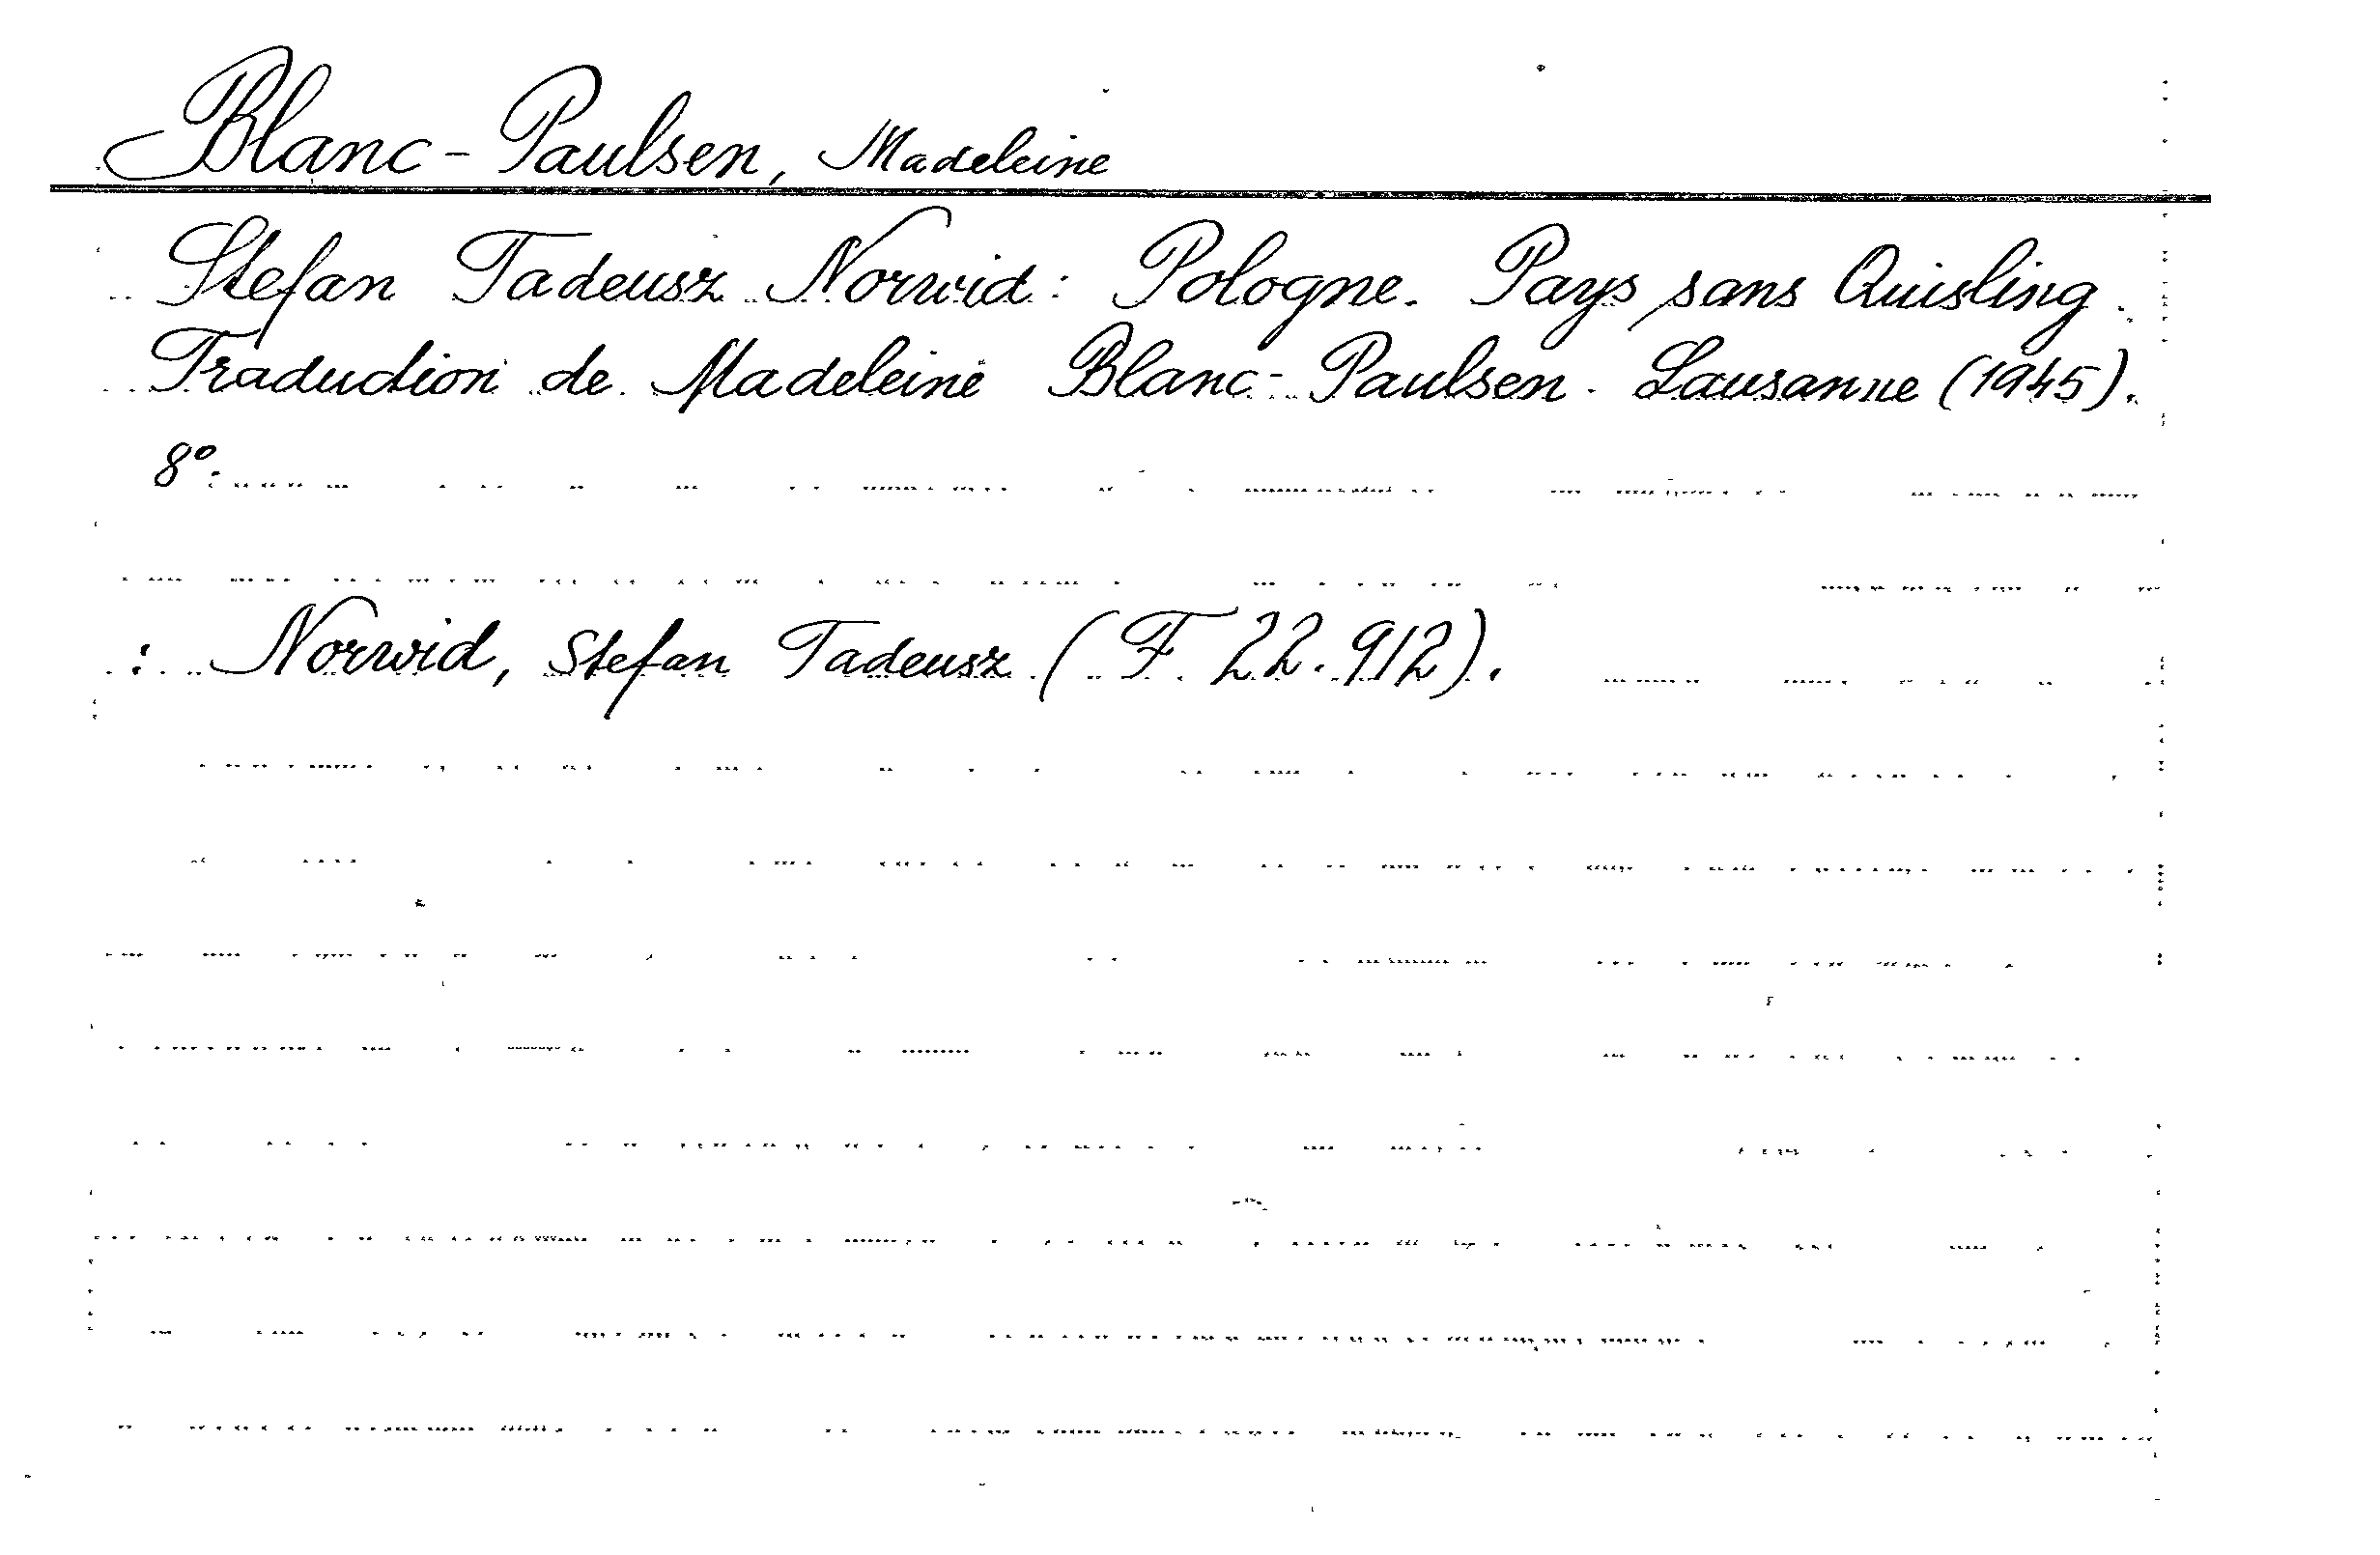 Blanc-Paulsen, Madeleine
Stefan Tadeusz Norwid: Pologne. Pays sans Quisling.
Traduction de Madeleine Blanc-Paulsen. Lausanne (1945).
8°.
: Norwid, Stefan Tadeusz (F 22.912).